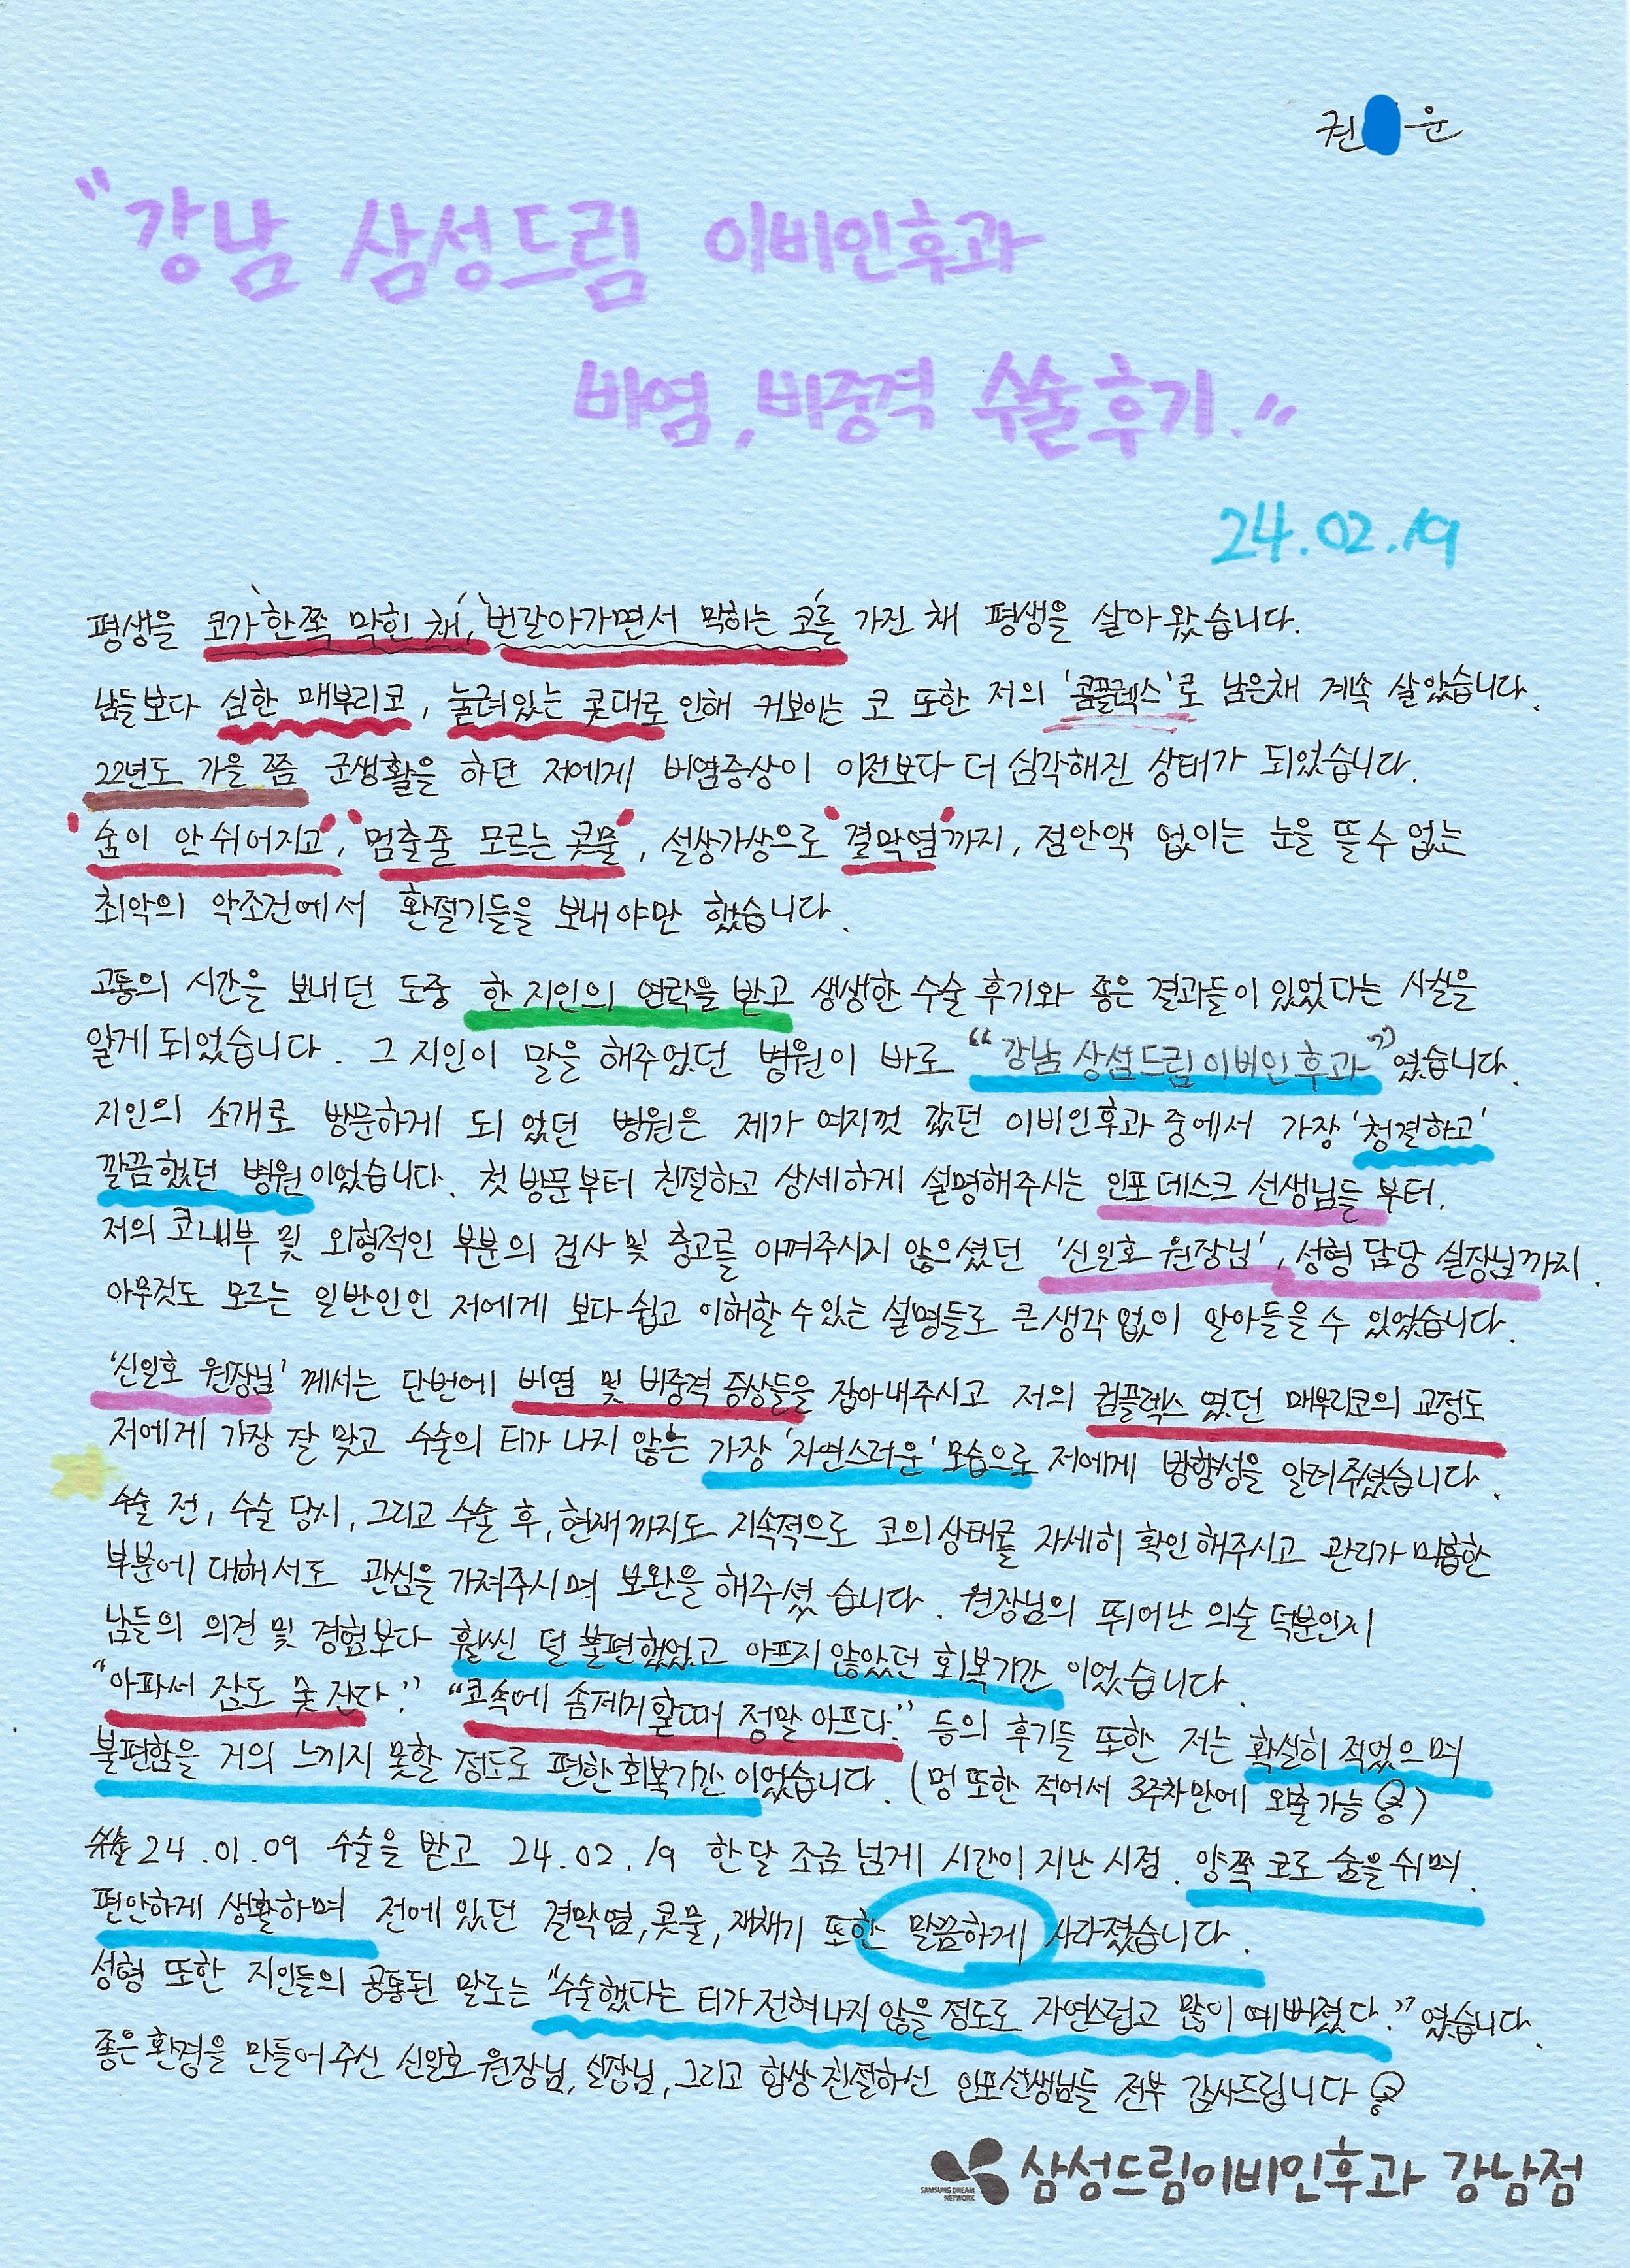 권 운
"강남 삼성드림 이비인후과
비염, 비중격 수술후기."
24.02.19
평생을 코가 '한쪽 막힌 채', '번갈아가면서 막히는 코'를 가진 채 평생을 살아 왔습니다.
남들보다 심한 매부리코, 눌려있는 콧대로 인해 커보이는 코 또한 저의 '콤플렉스'로 남은채 계속 살았습니다.
22년도 가을 쯤 군생활을 하던 저에게 비염증상이 이전보다 더 심각해진 상태가 되었습니다.
'숨이 안쉬어지고', '멈출줄 모르는 콧물', 설상가상으로 '결막염'까지, 점안액 없이는 눈을 뜰 수 없는
최악의 악조건에서 환절기들을 보내야만 했습니다.
고통의 시간을 보내던 도중 한 지인의 연락을 받고 생생한 수술 후기와 좋은 결과들이 있었다는 사실을
알게 되었습니다. 그 지인이 말을 해주었던 병원이 바로 "강남 삼성드림이비인후과"였습니다.
지인의 소개로 방문하게 되었던 병원은 제가 여지껏 갔던 이비인후과 중에서 가장 '청결하고'
깔끔했던 병원이었습니다. 첫 방문부터 친절하고 상세하게 설명해주시는 인포 데스크 선생님들 부터,
저의 코내부 및 외형적인 부분의 검사 및 충고를 아껴주시지 않으셨던 '신일호 원장님', 성형 담당 실장님까지.
아무것도 모르는 일반인인 저에게 보다 쉽고 이해할 수 있는 설명들로 큰 생각 없이 알아들을 수 있었습니다.
'신일호 원장님' 께서는 단번에 비염 및 비중격 증상들을 잡아내주시고 저의 컴플렉스 였던 매부리코의 교정도
저에게 가장 잘 맞고 수술의 티가 나지 않는 가장 '자연스러운' 모습으로 저에게 방향성을 알려주셨습니다.
수술 전, 수술 당시, 그리고 수술 후, 현재까지도 지속적으로 코의 상태를 자세히 확인 해주시고 관리가 미흡한
부분에 대해서도 관심을 가져주시며 보완을 해주셨습니다. 원장님의 뛰어난 의술 덕분인지
남들의 의견 및 경험보다 훨씬 덜 불편했었고 아프지 않았던 회복기간 이었습니다.
"아파서 잠도 못 잔다." "코속에 솜제거할때 정말 아프다." 등의 후기들 또한 저는 확실히 적었으며
불편함을 거의 느끼지 못할 정도로 편한 회복기간 이었습니다. (멍 또한 적어서 3주차만에 외출가능)
24.01.09 수술을 받고 24.02.19 한달 조금 넘게 시간이 지난 시점. 양쪽 코로 숨을 쉬며.
편안하게 생활하며 전에 있던 결막염, 콧물, 재채기 또한 말끔하게 사라졌습니다.
성형 또한 지인들의 공통된 말로는 "수술했다는 티가 전혀나지 않을 정도로 자연스럽고 많이 예뻐졌다." 였습니다.
좋은 환경을 만들어 주신 신일호 원장님, 실장님, 그리고 항상 친절하신 인포선생님들 전부 감사드립니다
SAMSUNG DREAM NETWORK 삼성드림이비인후과 강남점